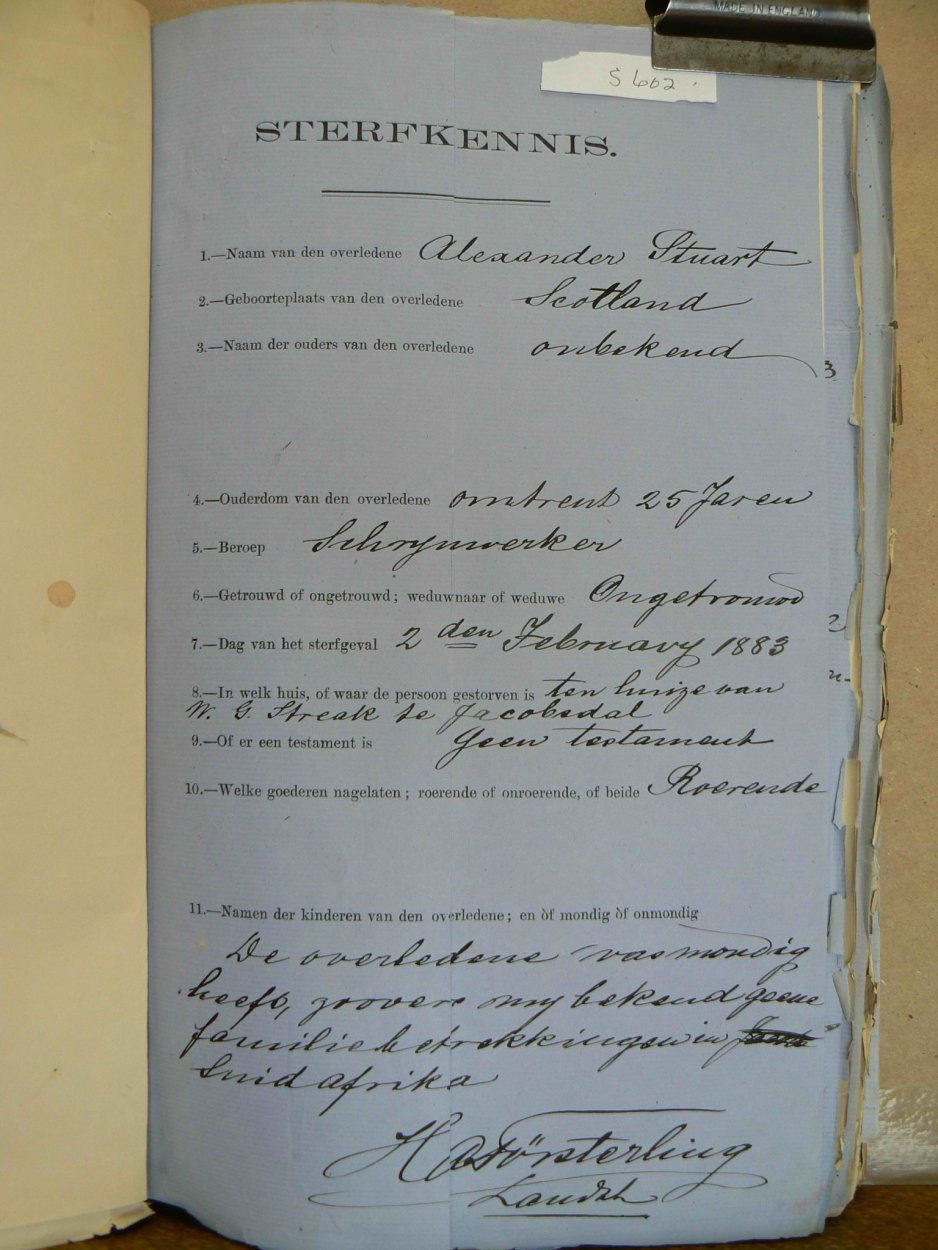 MADE IN ENGLAND
S 602
STERFKENNIS.
1.—Naam van den overledene Alexander Stuart
2.—Geboorteplaats van den overledene Scotland
3.—Naam der ouders van den overledene onbekend
3
4.—Ouderdom van den overledene omtrent 25 Jaren
5.—Beroep Schrynwerker
6.—Getrouwd of ongetrouwd; weduwnaar of weduwe Ongetrouwd
7.—Dag van het sterfgeval 2 den February 1883
8.—In welk huis, of waar de persoon gestorven is ten huize van
W. G. Streak te Jacobsdal
9.—Of er een testament is Geen testament
10.—Welke goederen nagelaten; roerende of onroerende, of beide Roerende
11.—Namen der kinderen van den overledene; en òf mondig òf onmondig
De overledene was mondig
heeft, zoovere my bekend geene
familie betrekkingen in
Suid afrika
HA Försterling
Landdt